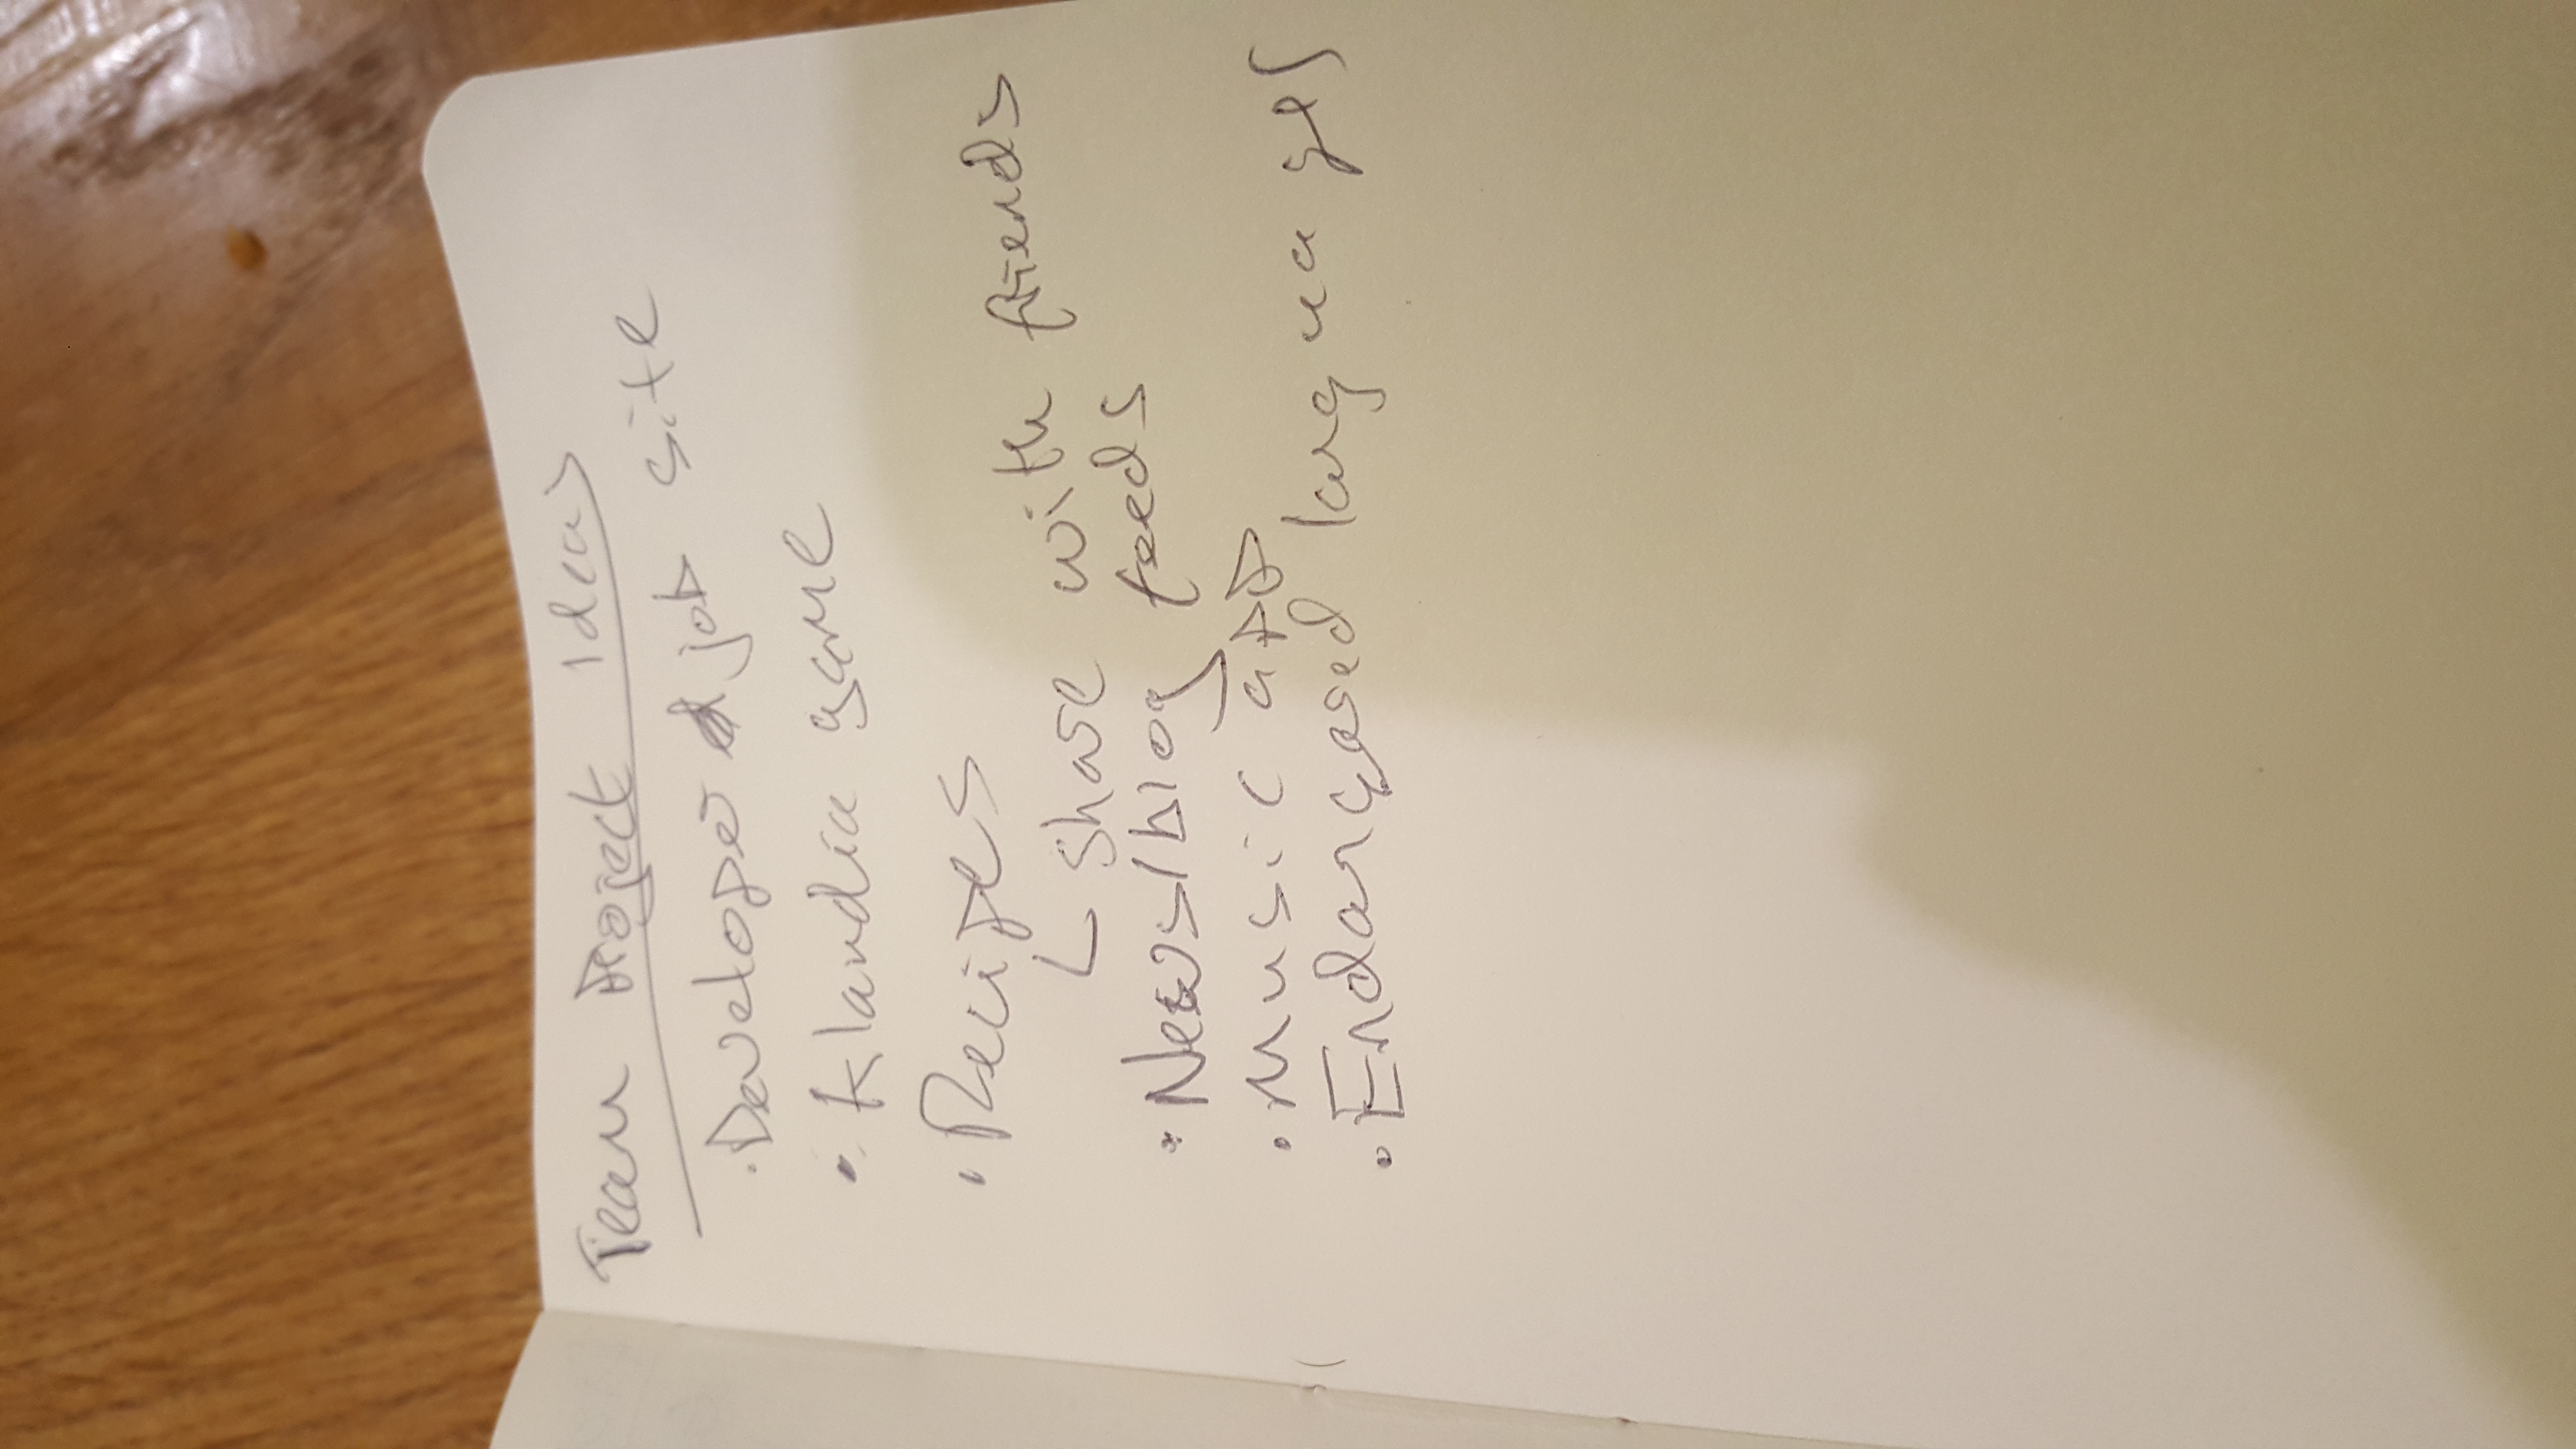 Team Project Ideas
· Developer job site
· Klaudia game
· Recipes
↳ share with friends
· News/blog feeds
· Music app
· Endangered languages